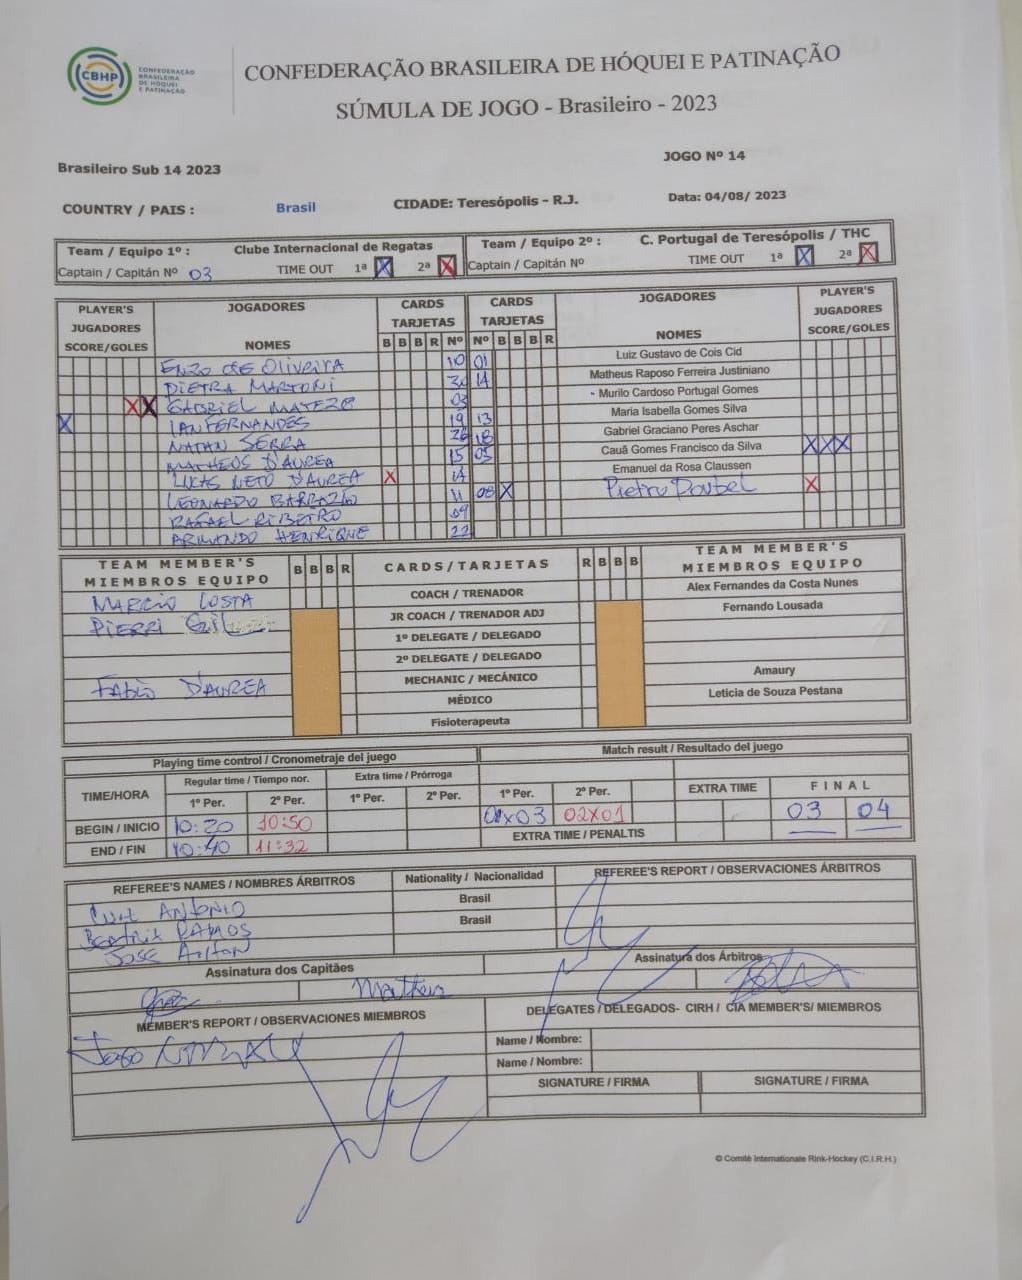 CBHP CONFEDERAÇÃO
BRASILEIRA
DE HÓQUEI
E PATINAÇÃO
CONFEDERAÇÃO BRASILEIRA DE HÓQUEI E PATINAÇÃO
SÚMULA DE JOGO - Brasileiro - 2023
Brasileiro Sub 14 2023 JOGO Nº 14
COUNTRY / PAIS : Brasil CIDADE: Teresópolis - R.J. Data: 04/08/ 2023
Team / Equipo 1º : Clube Internacional de Regatas Team / Equipo 2º : C. Portugal de Teresópolis / THC
Captain / Capitán Nº 03 TIME OUT 1ª X 2ª X Captain / Capitán Nº TIME OUT 1ª X 2ª X
PLAYER'S JOGADORES CARDS CARDS JOGADORES PLAYER'S
JUGADORES TARJETAS TARJETAS JUGADORES
SCORE/GOLES NOMES B B B R Nº Nº B B B R NOMES SCORE/GOLES
ENZO DE OLIVEIRA 10 01 Luiz Gustavo de Cois Cid
PIETRA MARTONI 30 14 Matheus Raposo Ferreira Justiniano
X X GABRIEL 03 - Murilo Cardoso Portugal Gomes
X IAN FERNANDES 19 13 Maria Isabella Gomes Silva
NATAN SERRA 26 18 Gabriel Graciano Peres Aschar
MATHEOS D'AUREA 15 05 Cauã Gomes Francisco da Silva X X X
LUKAS NETO D'AUREA X 14 Emanuel da Rosa Claussen
LEONARDO 11 08 X Pietro X
RAFAEL RIBEIRO 09
ARMANDO HENRIQUE 22
TEAM MEMBER'S B B B R CARDS/TARJETAS R B B B TEAM MEMBER'S
MIEMBROS EQUIPO MIEMBROS EQUIPO
MARCIO COSTA COACH / TRENADOR Alex Fernandes da Costa Nunes
PIERRI JR COACH / TRENADOR ADJ Fernando Lousada
1º DELEGATE / DELEGADO
2º DELEGATE / DELEGADO
FABIO D'AUREA MECHANIC / MECÂNICO Amaury
MÉDICO Leticia de Souza Pestana
Fisioterapeuta
Playing time control / Cronometraje del juego Match result / Resultado del juego
TIME/HORA Regular time / Tiempo nor. Extra time / Prórroga
1º Per. 2º Per. 1º Per. 2º Per. 1º Per. 2º Per. EXTRA TIME FINAL
BEGIN / INICIO 10:20 10:50 01x03 02x01 03 04
END / FIN 10:40 11:32 EXTRA TIME / PENALTIS
REFEREE'S NAMES / NOMBRES ÁRBITROS Nationality / Nacionalidad REFEREE'S REPORT / OBSERVACIONES ÁRBITROS
ANTÔNIO Brasil
BEATRIX RAMOS Brasil
JOSE
Assinatura dos Capitães Assinatura dos Árbitros
Matheus
MEMBER'S REPORT / OBSERVACIONES MIEMBROS DELEGATES / DELEGADOS- CIRH / CIA MEMBER'S/ MIEMBROS
Name / Nombre:
Name / Nombre:
SIGNATURE / FIRMA SIGNATURE / FIRMA
© Comitè Internationale Rink-Hockey (C.I.R.H.)